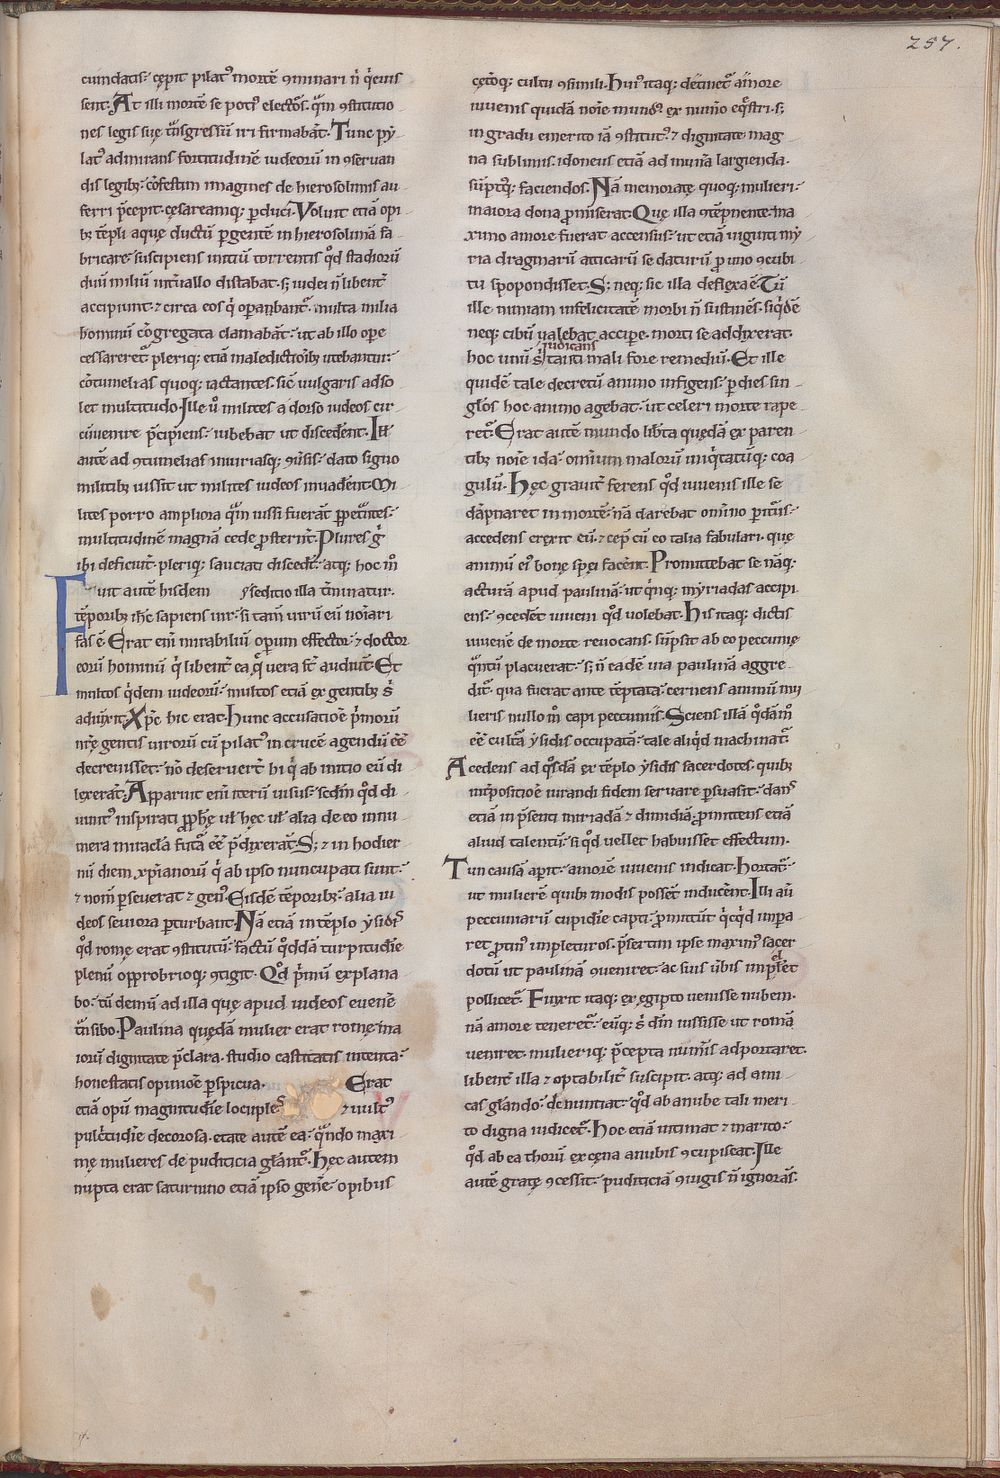 257.
cumdatis· cępit pilatꝰ mortē ꝯminari n̄ q̇euis
sent. At illi mortē se potiꝰ electos· q̄m ꝯstitutio
nes legis suę t̄nsgressū iri firmabāt. Tunc py
latꝰ admirans fortitudinē iudeorū in ꝯseruan
dis legibꝫ· cōfestim imagines de hierosolimis au
ferri p̄cepit· cęsareamqꝫ ꝑduci. Voluit etiā opi
bꝫ tēpli aquę ductū ꝑgentē in hierosolimā fa
bricare· suscipiens initiū torrentis q̄d stadiorū
duū miliū int̄uallo distabat· sꝫ iudei n̄ libent̄
accipiunt· ⁊ circa eos q̇ oꝑanbant̄· multa milia
hominū cōgregata clamabāt· ut ab illo ope
cessareret̄· pleriqꝫ etiā maledictioibꝫ utebantur·
cōtumelias quoqꝫ iactantes· sic̄ uulgaris adso
let multitudo. Ille u̇ milites a dorso iudeos cir
cūuenire p̄cipiens· iubebat ut disceđent. Illi
autē ad ꝯtumelias iniuriasqꝫ ꝯūsis· dato signo
militibꝫ iussit ut milites iudeos inuađent. Mi
lites porro ampliora q̄m iussi fuerāt ꝑpet̄ntes·
multitudinē magnā cede ꝓstern̄t. Plures g̊
ibi deficiunt· pleriqꝫ sauciati disceđt· atqꝫ hoc m̊
Fuit autē hisdem ẏseditio illa t̄minatur.
tēporibꝫ ih̄c sapiens uir· si tam̄ uirū eū noīari
fas ē. Erat eni mirabiliū oꝑum effector· ⁊ doctor
eorū hominū q̇ libent̄ ea q̨̄ uera st̄ audiunt. Et
multos q̇dem iudeorū· multos etiā ex gentibꝫ s̊
adiuxit. Xp̄c hic erat. Hunc accusatioē ṗmorū
n̄rę gentis uirorū cū pilatꝰ in crucē agendū ēē
decreuisset· nō deserueŕt hi q̇ ab initio eū di
lexerāt. Apparuit eni iterū uiuus· scđm q̇d di
uinitꝰ inspirati ꝓph̄ę ul̄ hęc ul̄ alia de eo innu
mera miracl̄a fut̄a ēē p̄dixerāt. Sꝫ ⁊ in hodier
nū diem xp̄ianorū q̇ ab ipso nuncupati sunt·
⁊ nom̄ ꝑseuerat ⁊ genꝰ. Eisdē tēporibꝫ· alia iu
deos seuiora ꝑturbant. Nā etiā in tēplo ẏsidis
q̇d romę erat ꝯstitutū· factū q̇ddā turpitudīe
plenū opprobrioqꝫ ꝯtigit. Qd̄ ṗmū explana
bo· tū demū ad illa quę apud iudeos euenē
t̄nsibo. Paulina quędā mulier erat romę· ma
iorū dignitate p̄clara· studio castitatis intenta·
honestatis opinioē ꝑspicua. Erat
etiā opū magnitudīe locuples ⁊ uultꝰ
pulcritudīe decorosa· etate autē ea· q̄ndo maxi
mę mulieres de pudicicia gl̄ant̄. Hęc autem
nupta erat saturnino etiā ipso geńe· opibus
cęt̄oqꝫ cultu ꝯsimili. Huiꝰ itaqꝫ detinet̄ amore
iuuenis quidā noīe mundꝰ· ex num̊o eq̄stri· sꝫ
in gradu emerito iā ꝯstitutꝰ· ⁊ dignitate mag
na sublimis· idoneus etiā ad munā largienda·
sūptꝰqꝫ faciendos. Nā memoratę quoqꝫ mulieri·
maiora dona ꝓmiserat. Quę illa ꝯtēpnente· ma
ximo amore fuerat accensus· ut etiā uiginti mẏ
ria dragmarū atticarū se daturū ꝓ uno ꝯcubi
tu spopondisset. Sꝫ neqꝫ sic illa deflexa ē. Tū
ille nimiam infelicitatē morbi n̄ sustinēs· siq̇dē
neqꝫ cibū ualebat accipe· morti se addixerat·
iudicans
hoc unū s̊ tanti mali fore remediū. Et ille
quidē tale decretū animo infigens· ꝑ dies sin
gl̄os hoc animo agebat· ut celeri morte rape
ret̄. Erat autē mundo lib̄ta quędā ex paren
tibꝫ noīe ida· omnium malorū iniq̇tatūqꝫ coa
gulū. Hęc grauit̄ ferens q̇d iuuenis ille se
dāpnaret in mortē· nā darebat omnīo peritus·
accedens erexit eū· ⁊ cep̄ cū eo talia fabulari· quę
animū eiꝰ bonę spei facent. Promittebat se nāqꝫ
acturā apud paulinā· ut q̇nqꝫ mẏriadas accipi
ens· ꝯcedēt iuueni q̇d uolebat. His itaqꝫ dictis
iuuenē de morte reuocans· sūpsit ab eo peccunię
q̄ntū placuerat· sꝫ n̄ eadē uia paulinā aggre
dit̄· qua fuerat ante tēptata· cernens animū mu
lieris nullo m̊ capi peccuniis. Sciens illā q̇dām
ēē cult̄a ẏsidis occupatā· tale aliq̇d machinat̄.
Acedens ad q̇sdā ex tēplo ẏsidis sacerdotes· quibꝫ
int̄positioē iurandi fidem seruare ꝑsuasit· dans
etiā in p̄senti miriadā ⁊ dimidiā· ꝓmittens etiā
aliud talentū· si q̇d uellet habuisset effectum.
Tun causā aꝑit· amorē iuuenis indicat. Hortat̄·
ut mulierē quibꝫ modis possēt inducent. Illi aū
peccuniarū cupidīe capti· ꝓmittūt q̇cq̇d impa
ret ꝓtinꝰ impleturos. p̄sertim ipse maximꝰ sacer
dotū ut paulinā ꝯueniret· ac suis ūbis impl̄ēt
pollicet̄. Finxit itaqꝫ ex egipto uenisse nubem·
nā amore teneret̄· eūqꝫ s̊ dm̄ iussisse ut romā
ueniret· mulieriqꝫ p̄cepta numīs adportaret.
libent̄ illa ⁊ optabilit̄ suscipit· atqꝫ ad ami
cas gl̄ando· denuntiat· q̇d ab anube tali meri
to digna iudicet̄. Hoc etiā intimat ⁊ marito·
q̇d ab ea thorū ex cęna anubis ꝯcupiscat. Ille
autē gratę ꝯcessit· pudiciciā ꝯiugis n̄ ignorās.